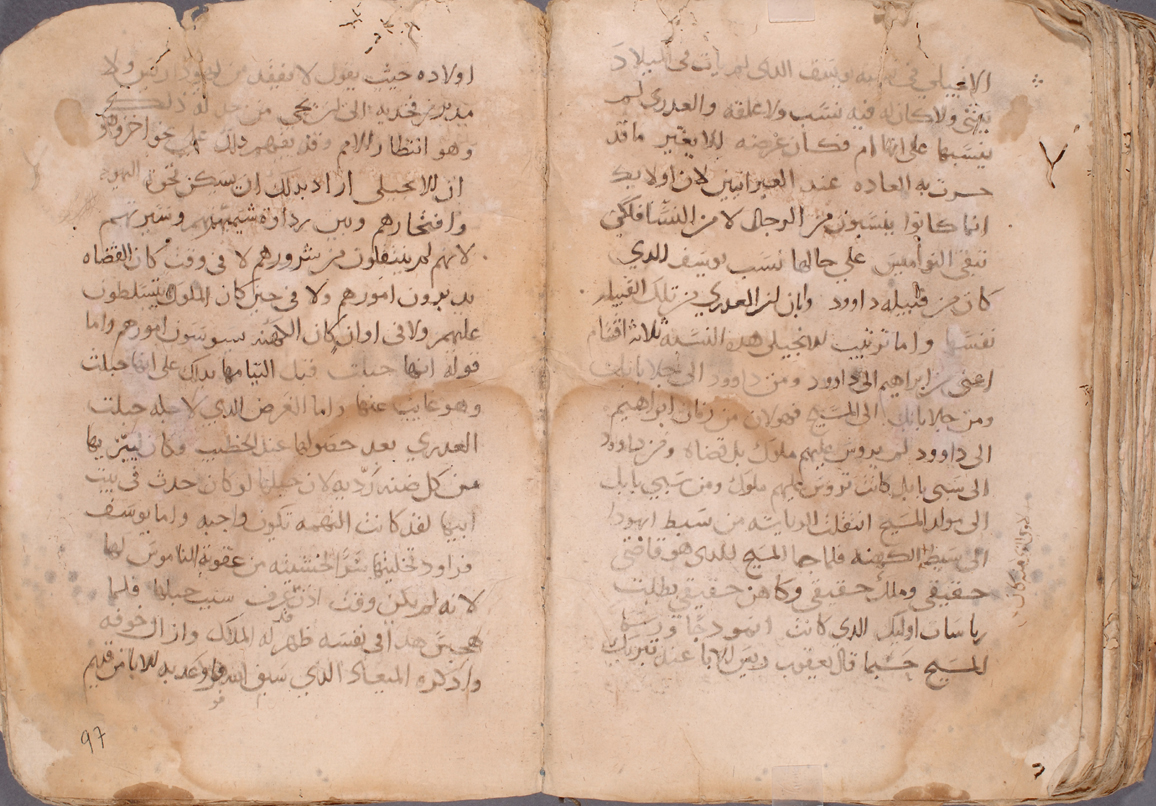 الانجيلى في يوسف الذى لم يأت في الميلاد
بشي ولا كان له فيه نسب ولا علقه والعدرى لم
ينسبها على انها ام فكان غرضه الا يغير ما قد
جرت به العاده عند العبرانيين لان اولايك
انما كانوا ينسبون من الرجال لا من النسا فلكى
تبقى النواميس على حالها نسب يوسف الذي
كان من قبيله داوود وابان ان العدري من تلك القبيله
نفسها واما ترتيب الانجيلى هذه النسبه ثلاثه اقسام
اعنى من ابراهيم الى داوود ومن داوود الى جلا بابل
ومن جلا بابل الى المسيح فهو لان من زمان ابراهيم
الى داوود لم يروس عليهم ملوك بل قضاه ومن داوود
الى سبى بابل كانت تروس عليهم ملوك ومن سبي بابل
الى مولد المسيح انتقلت الرياسه من سبط ايهودا
الى سبط الكهنه فلما جا المسيح الذى هو قاضى
حقيقي وملك حقيقي وكاهن حقيقي بطلت
رياسات اوليك الذي كانت انموذجا ورسما
المسيح حسبما قال يعقوب رييس الابا عند تبريك
اولاده حيث يقول لا يفقد من ايهودا رييس ولا
مدبر من فخديه الى ان يجي من له ذلك
وهو انتظار الامم وقد يفهم ذلك على نحو اخر وهو
ان الانجيلى اراد بذلك ان يسكن نخوة اليهود
وافتخارهم ويبين رداوة شيمتهم وسيرتهم
لانهم لم ينتقلون من شرورهم لا في وقت كان القضاه
يدبرون امورهم ولا في حين كان الملوك يتسلطون
عليهم ولا فى اوان كان الكهنه يسوسون امورهم واما
قوله انها حبلت قبل التيامها بذلك على انها حبلت
وهو غايب عنها واما الغرض الذي لاجله حبلت
العدري بعد حصولها عند الخطيب وكان
من كل لان حبلها لو كان حدث في بيت
ابيها لقد كانت التهمه تكون واجبه واما يوسف
فراود تخليتها سرا لخشيته من عقوبة الناموس لها
لانه لم يكن وقت اذن عرف سبب حبلها فلما
هجس هذا في نفسه ظهر له الملاك وازال خوفه
واذكره الميعاد الذي سبق الله وعد به للابا من قديم
97